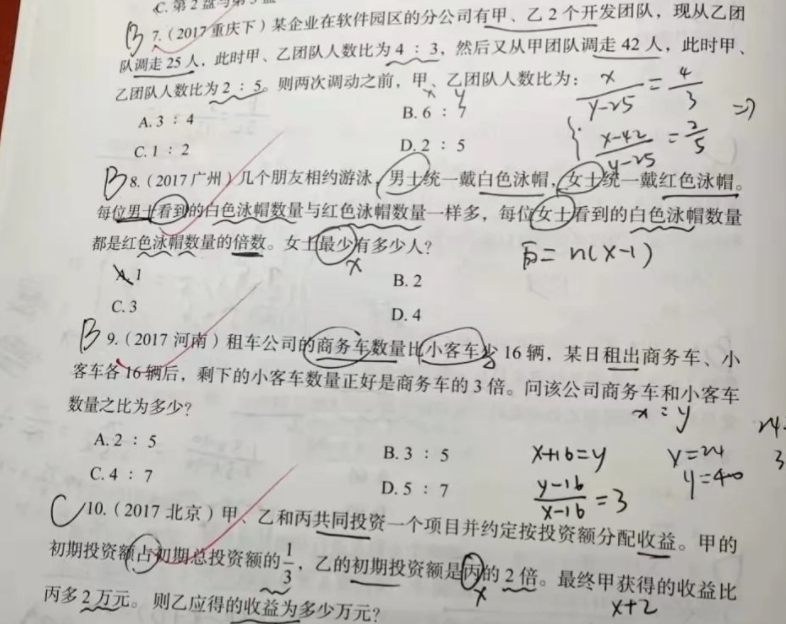 C. 第 2 盘与第 3 盘
B 7.（2017 重庆下）某企业在软件园区的分公司有甲、乙 2 个开发团队，现从乙团
队调走 25 人，此时甲、乙团队人数比为 4 ∶ 3，然后又从甲团队调走 42 人，此时甲、
乙团队人数比为 2 ∶ 5。则两次调动之前，甲、乙团队人数比为：
x y
x/(y-25) = 4/3 ⇒
A. 3 ∶ 4
B. 6 ∶ 7
{ (x-42)/(y-25) = 2/5
C. 1 ∶ 2
D. 2 ∶ 5
B 8.（2017 广州）几个朋友相约游泳，男士统一戴白色泳帽，女士统一戴红色泳帽。
每位男士看到的白色泳帽数量与红色泳帽数量一样多，每位女士看到的白色泳帽数量
都是红色泳帽数量的倍数。女士最少有多少人？
x
= n(x-1)
A. 1
B. 2
C. 3
D. 4
B 9.（2017 河南）租车公司的商务车数量比小客车少 16 辆，某日租出商务车、小
客车各 16 辆后，剩下的小客车数量正好是商务车的 3 倍。问该公司商务车和小客车
数量之比为多少？
x : y
A. 2 ∶ 5
B. 3 ∶ 5
x+16=y
C. 4 ∶ 7
D. 5 ∶ 7
(y-16)/(x-16) = 3
C 10.（2017 北京）甲、乙和丙共同投资一个项目并约定按投资额分配收益。甲的
初期投资额占初期总投资额的 1/3，乙的初期投资额是丙的 2 倍。最终甲获得的收益比
x
丙多 2 万元。则乙应得的收益为多少万元？
x+2